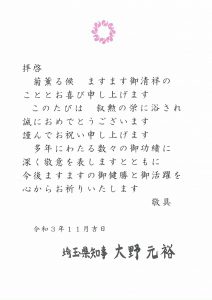 拝啓
菊薫る候　ますます御清祥の
こととお喜び申し上げます
このたびは　叙勲の栄に浴され
誠におめでとうございます
謹んでお祝い申し上げます
多年にわたる数々の御功績に
深く敬意を表しますとともに
今後ますますの御健勝と御活躍を
心からお祈りいたします
敬具
令和３年１１月吉日
埼玉県知事　大野元裕